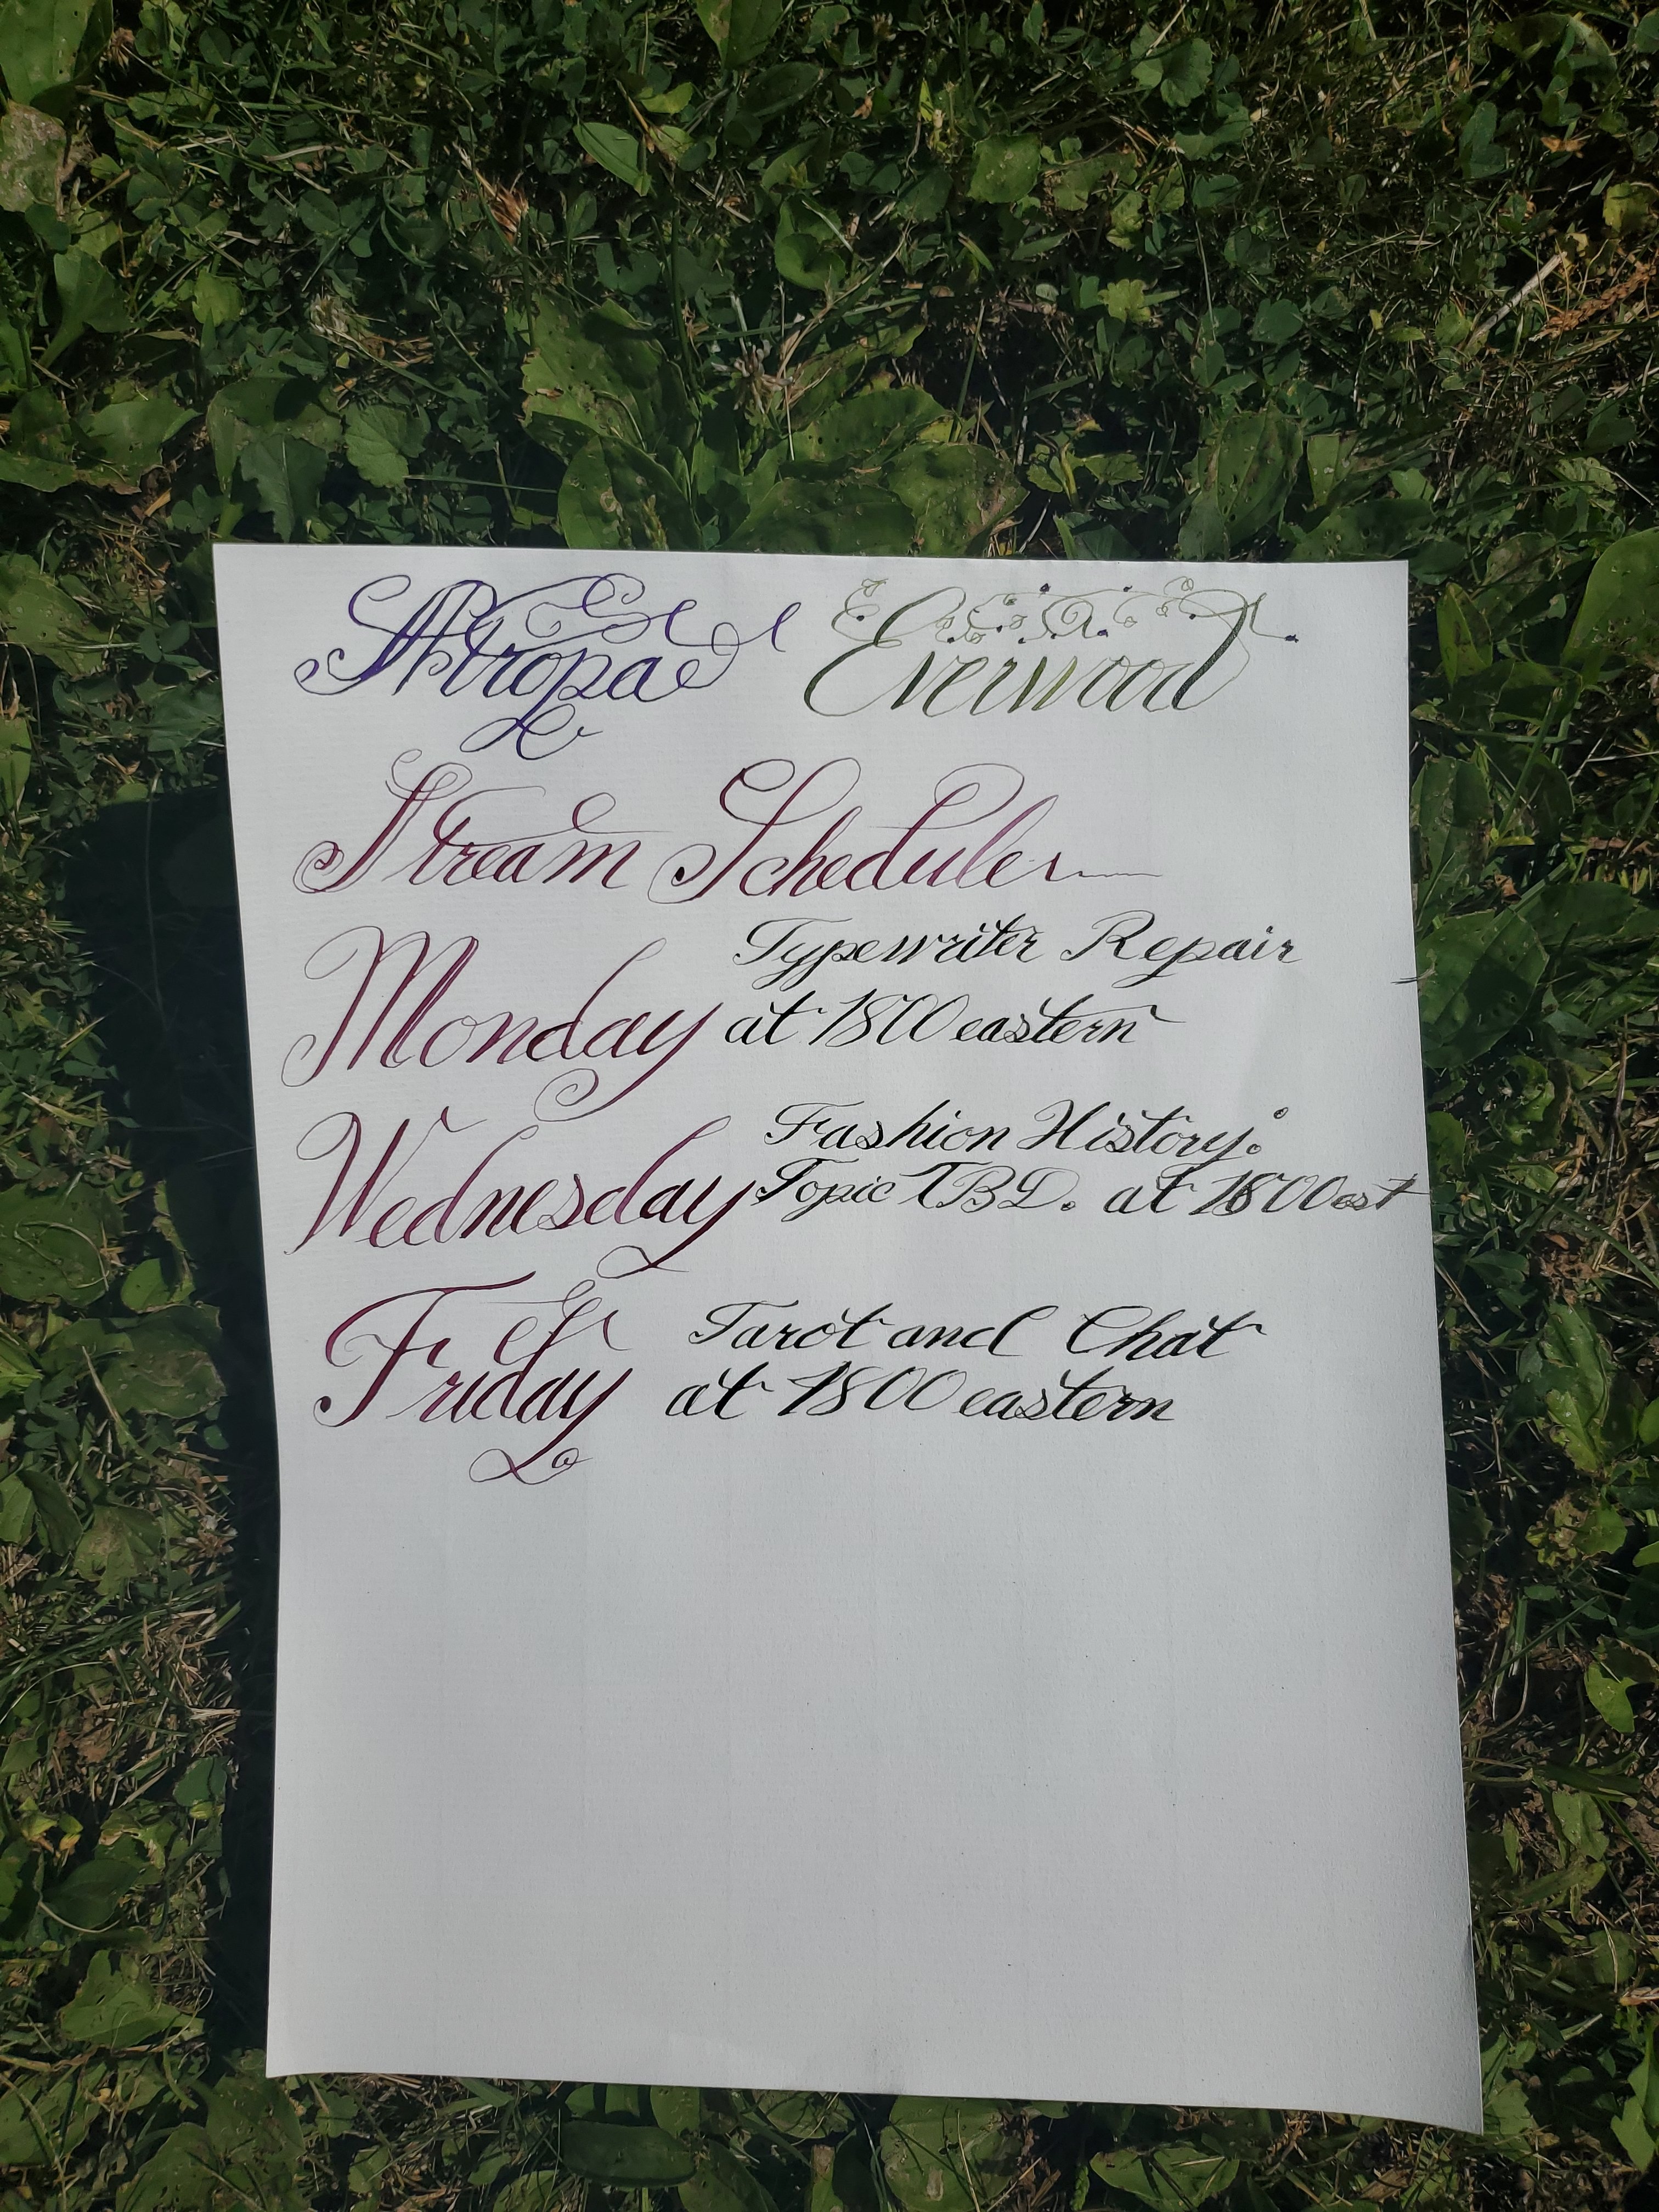 Atropa Everwood
Stream Schedule
Monday Typewriter Repair
at 1800 eastern
Wednesday Fashion History:
Topic TBD. at 1800 est
Friday Tarot and Chat
at 1800 eastern